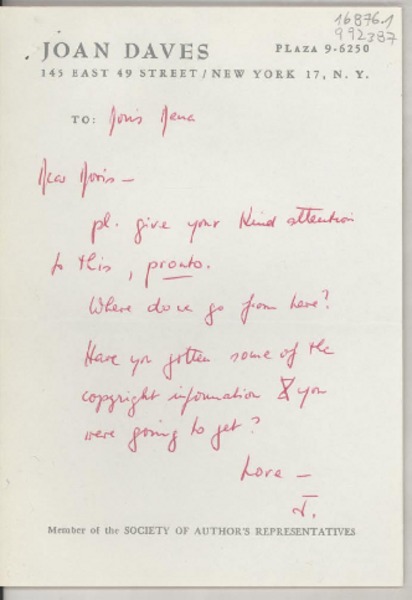 16876.1
992387
JOAN DAVES
PLAZA 9-6250
145 EAST 49 STREET / NEW YORK 17, N. Y.
TO: Doris Dana
Dear Doris —
pl. give your kind attention
to this, pronto.
Where do we go from here?
Have you gotten some of the
copyright information you
were going to get?
Love —
J.
Member of the SOCIETY OF AUTHOR'S REPRESENTATIVES